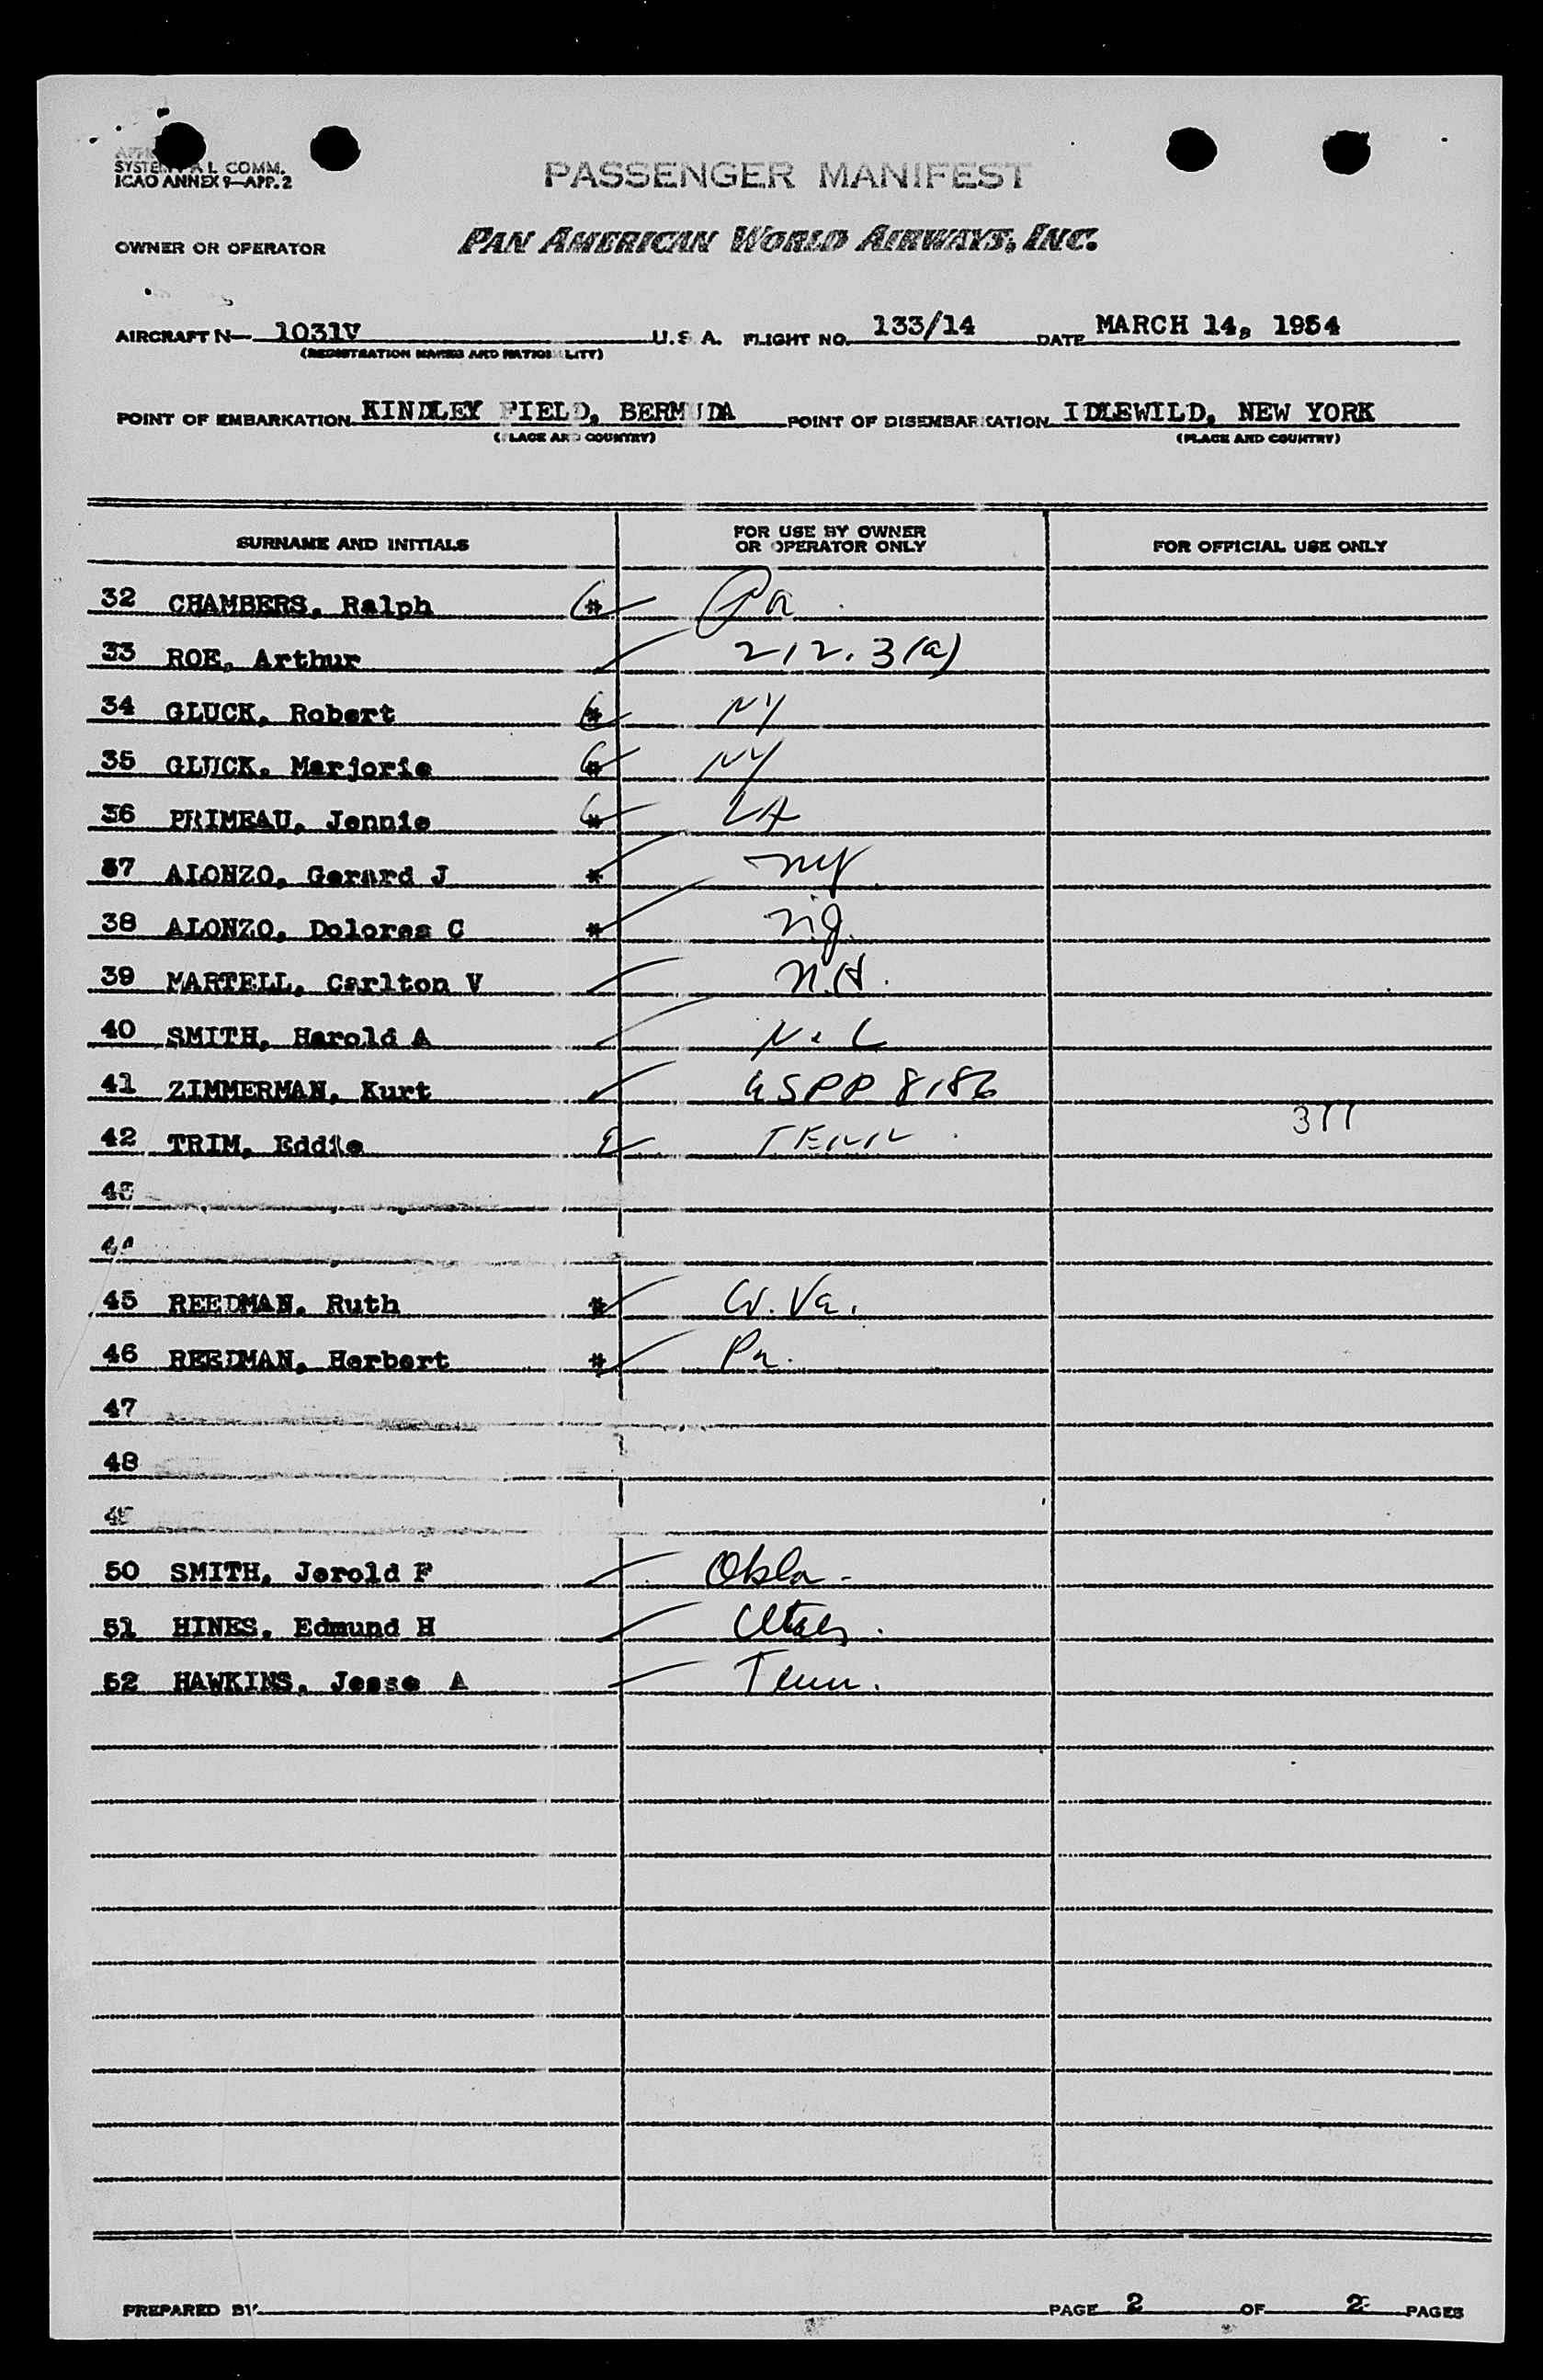 SYSTEM COMM.
ICAO ANNEX 9—APP. 2
PASSENGER MANIFEST
OWNER OR OPERATOR PAN AMERICAN WORLD AIRWAYS, INC.
AIRCRAFT N— 1031V U.S.A. FLIGHT NO. 133/14 DATE MARCH 14, 1954
(REGISTRATION MARKS AND NATIONALITY)
POINT OF EMBARKATION KINDLEY FIELD, BERMUDA POINT OF DISEMBARKATION IDLEWILD, NEW YORK
(PLACE AND COUNTRY) (PLACE AND COUNTRY)
SURNAME AND INITIALS FOR USE BY OWNER OR OPERATOR ONLY FOR OFFICIAL USE ONLY
32 CHAMBERS, Ralph * Pa.
33 ROE, Arthur 212.3(a)
34 GLUCK, Robert * NY
35 GLUCK, Marjorie * NY
36 PRIMEAU, Jennie * LA
37 ALONZO, Gerard J * NY
38 ALONZO, Dolores C * N.J.
39 MARTELL, Carlton V N.H.
40 SMITH, Harold A N.C
41 ZIMMERMAN, Kurt USPP 8186
42 TRIM, Eddie TENN. 377
43
44
45 REEDMAN, Ruth * W. Va.
46 REEDMAN, Herbert * Pa.
47
48
49
50 SMITH, Jerold F Okla-
51 HINES, Edmund H Utah.
52 HAWKINS, Jesse A Tenn.
PREPARED BY PAGE 2 OF 2 PAGES